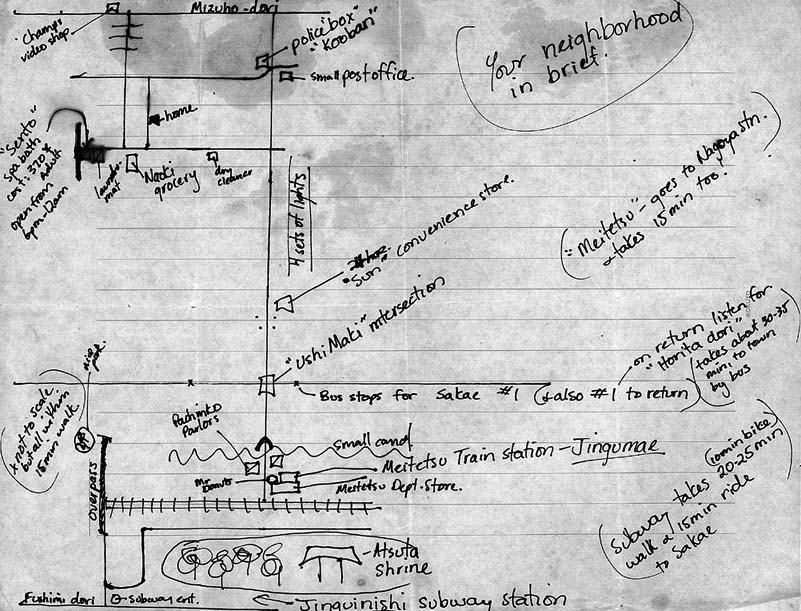 Mizuho-dori
"Champ"
video shop
police "box"
"Kooban"
small post office.
Your neighborhood
in brief.
home
"Sento"
spa bath
cost: 370¥
adult
open from
6pm-12am
laundermat
Naoki
grocery
dry
cleaner
4 sets of lights
"Sun" convenience store.
"Meitetsu" - goes to Nagoya stn.
& takes 15 min too!
"Ushi Maki" intersection
Bus stops for Sakae #1 (& also #1 to return)
on return listen for
"Horita dori"
takes about 30-35
min. to town
by bus
nice
park.
* not to scale
but all within
15 min walk.
Pachinko
Parlors
small canal
Mr
Donuts
Meitetsu Train station - Jingumae
Meitetsu Dept. Store.
overpass
Subway takes (10 min bike)
20-25 min
walk & 15 min ride
to Sakae
Atsuta
Shrine
Fushimi dori
subway ent.
Jinguinishi subway station